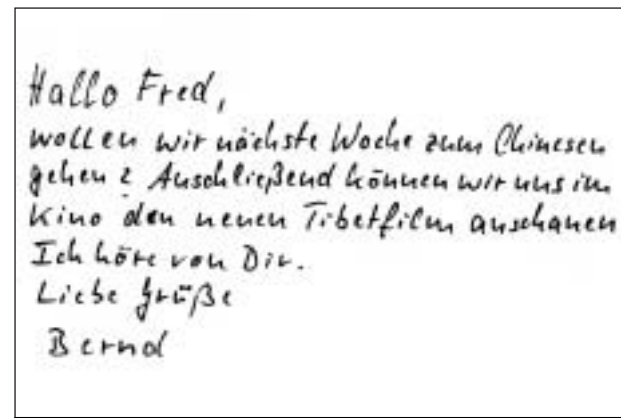 Hallo Fred,
wollen wir nächste Woche zum Chinesen
gehen? Anschließend können wir uns im
Kino den neuen Tibetfilm anschauen
Ich höre von Dir.
Liebe Grüße
Bernd